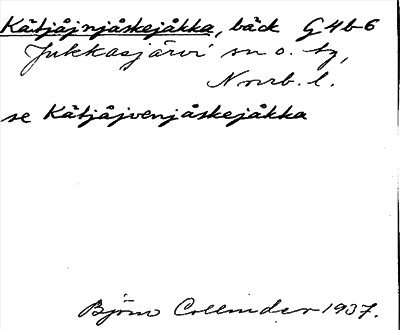 Kätjåjnjåskejåkka, bäck G4b6
Jukkasjärvi sn o. tg,
Norrb. l.
se Kätjåjvenjåskejåkka
Björn Collinder 1937.